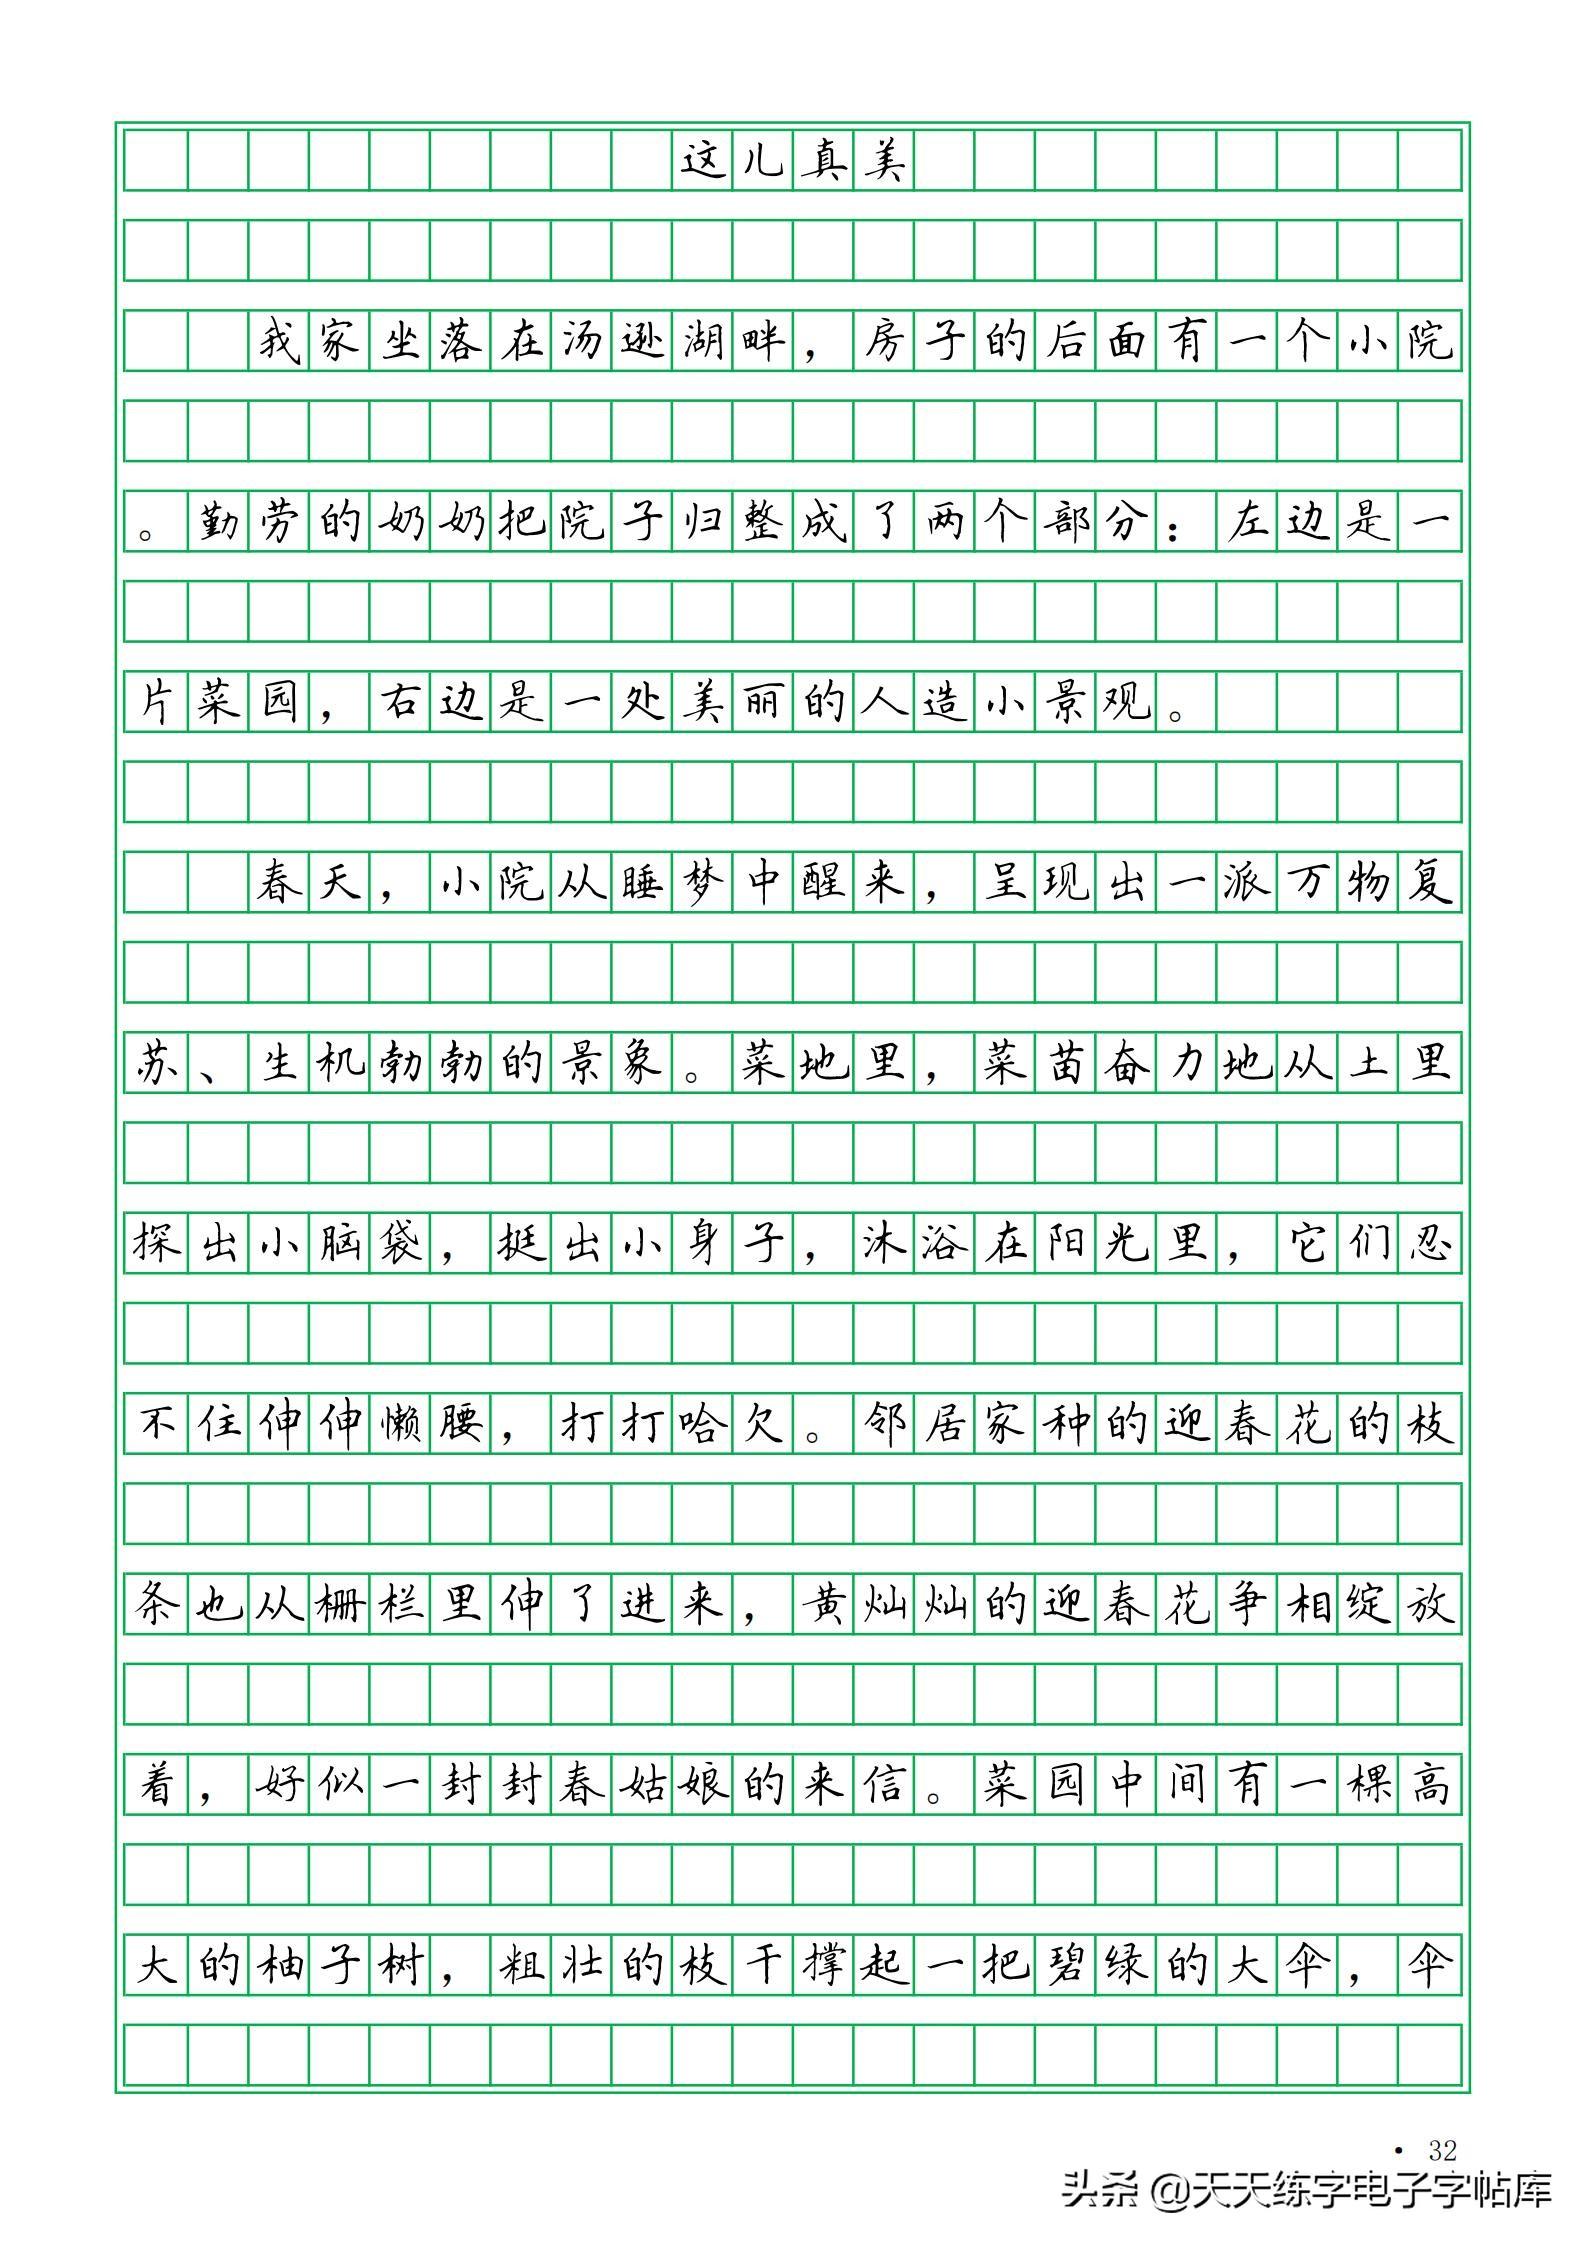 这儿真美
我家坐落在汤逊湖畔，房子的后面有一个小院
。勤劳的奶奶把院子归整成了两个部分：左边是一
片菜园，右边是一处美丽的人造小景观。
春天，小院从睡梦中醒来，呈现出一派万物复
苏、生机勃勃的景象。菜地里，菜苗奋力地从土里
探出小脑袋，挺出小身子，沐浴在阳光里，它们忍
不住伸伸懒腰，打打哈欠。邻居家种的迎春花的枝
条也从栅栏里伸了进来，黄灿灿的迎春花争相绽放
着，好似一封封春姑娘的来信。菜园中间有一棵高
大的柚子树，粗壮的枝干撑起一把碧绿的大伞，伞
· 32
头条 @天天练字电子字帖库